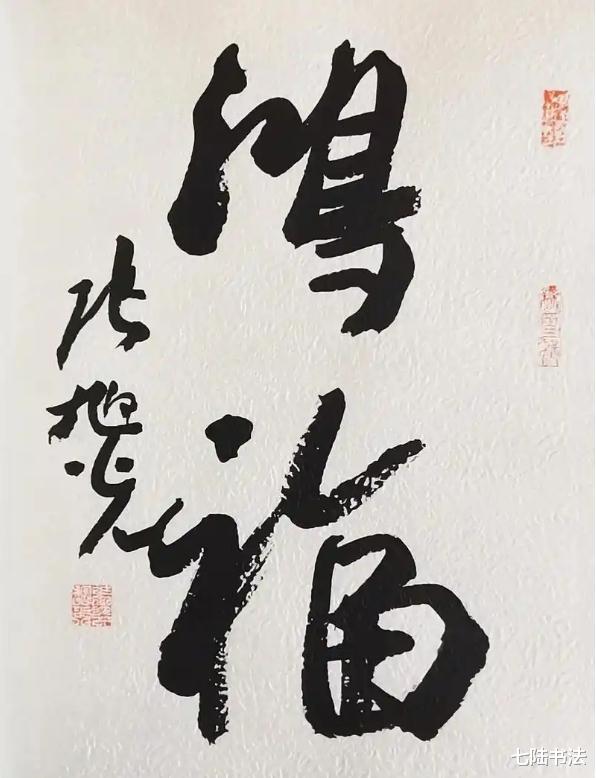 鴻福
张旭光
七陆书法